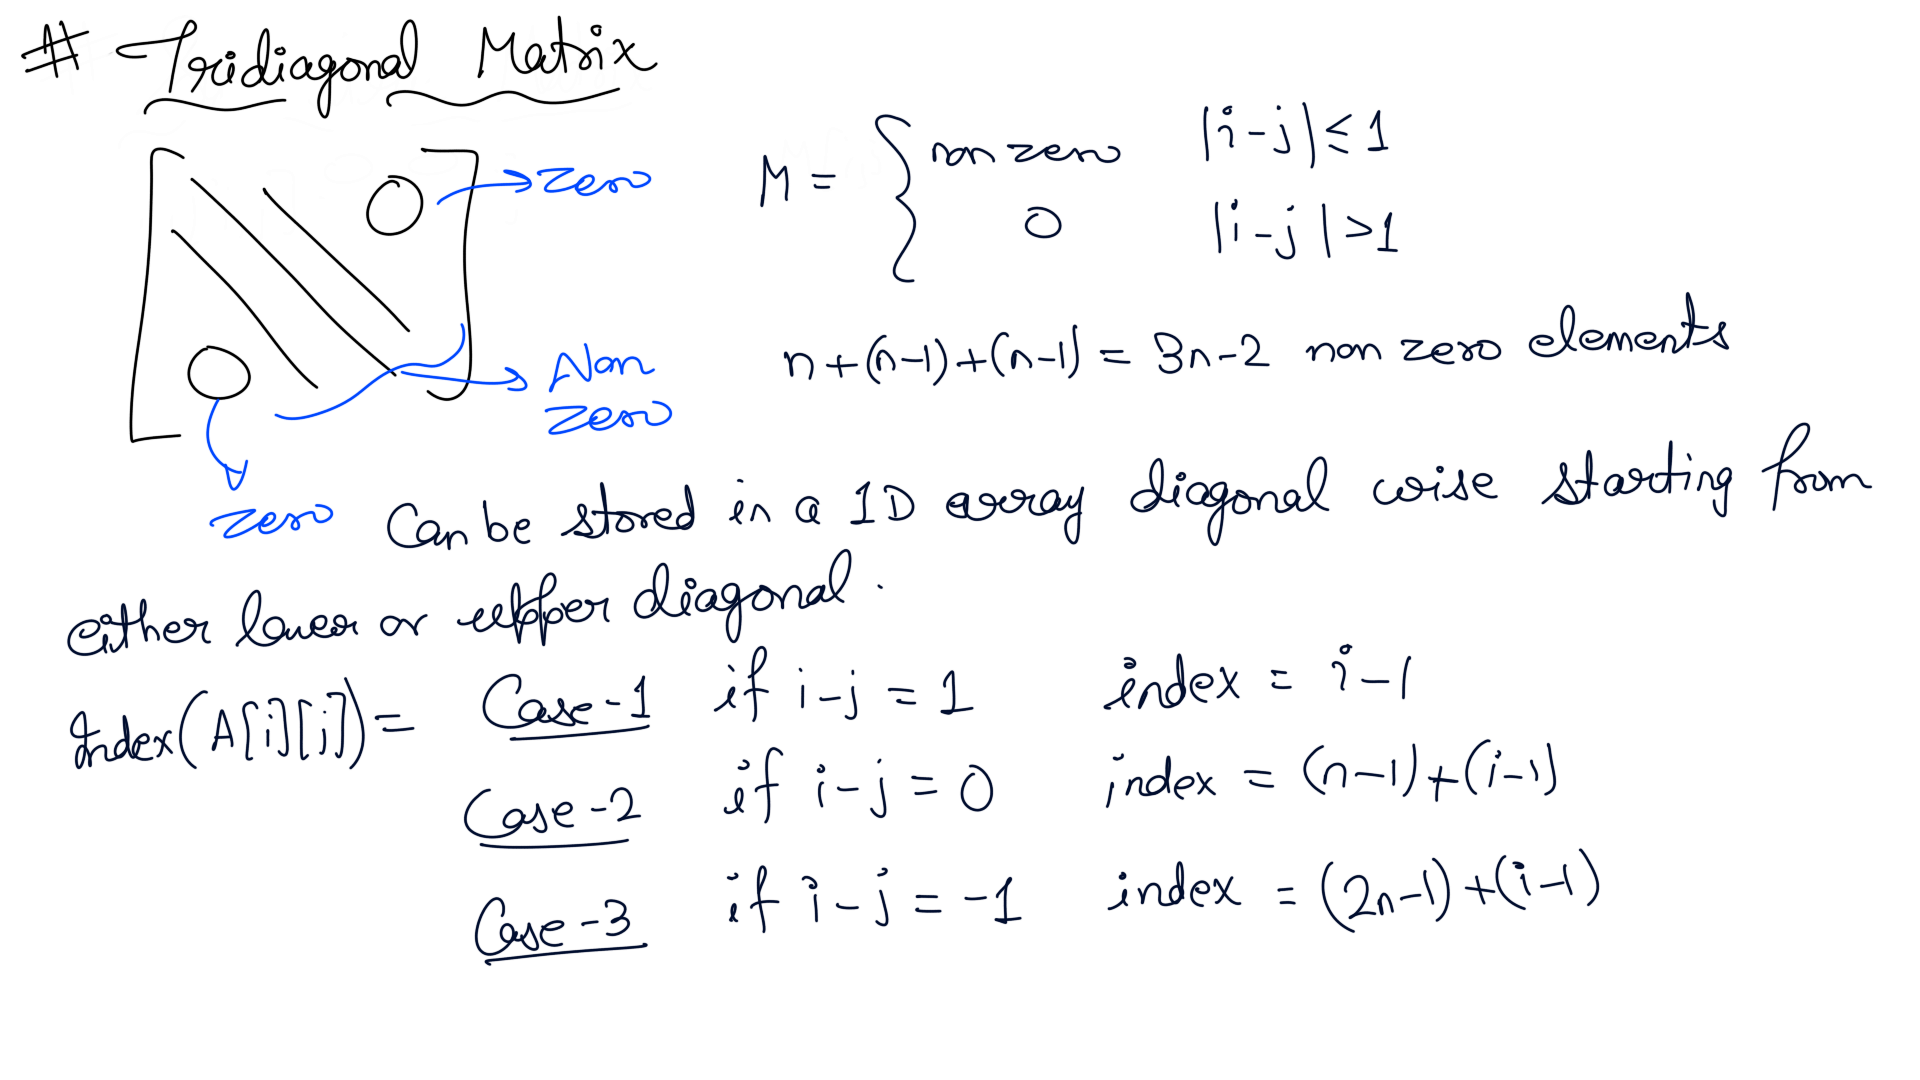 # Tridiagonal Matrix
zero
Non
zero
zero
M = { non zero |i-j| ≤ 1
0 |i-j| > 1
n+(n-1)+(n-1) = 3n-2 non zero elements
Can be stored in a 1D array diagonal wise starting from
either lower or upper diagonal.
Index(A[i][j]) = Case-1 if i-j = 1 index = i-1
Case-2 if i-j = 0 index = (n-1)+(i-1)
Case-3 if i-j = -1 index = (2n-1)+(i-1)